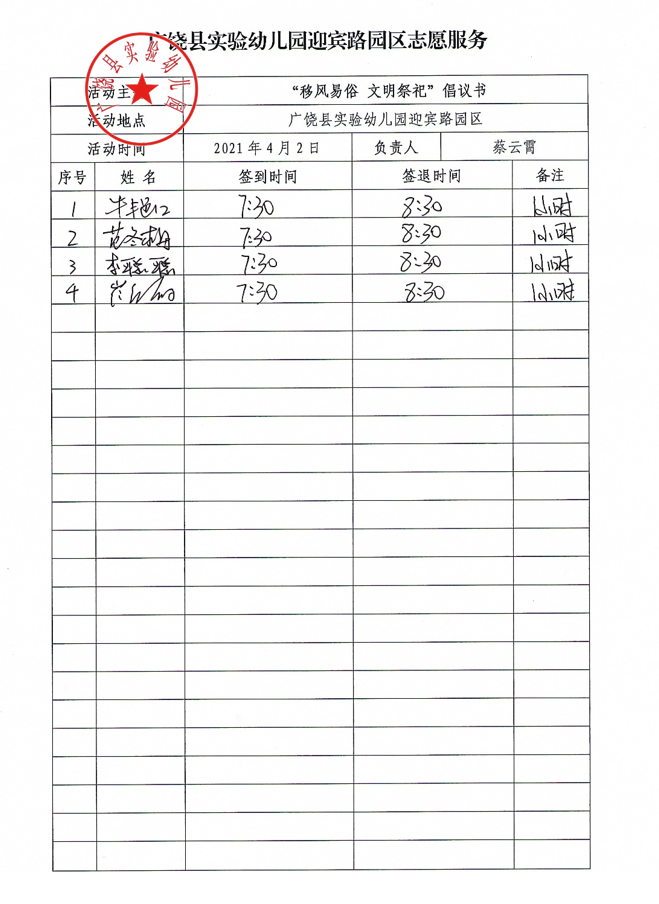 广饶县实验幼儿园迎宾路园区志愿服务
广饶县实验幼儿园
活动主 “移风易俗 文明祭祀”倡议书
活动地点 广饶县实验幼儿园迎宾路园区
活动时间 2021年4月2日 负责人 蔡云霄
序号 姓 名 签到时间 签退时间 备注
1 牛艳红 7:30 8:30 1小时
2 范冬梅 7:30 8:30 1小时
3 李 7:30 8:30 1小时
4 崔 7:30 8:30 1小时